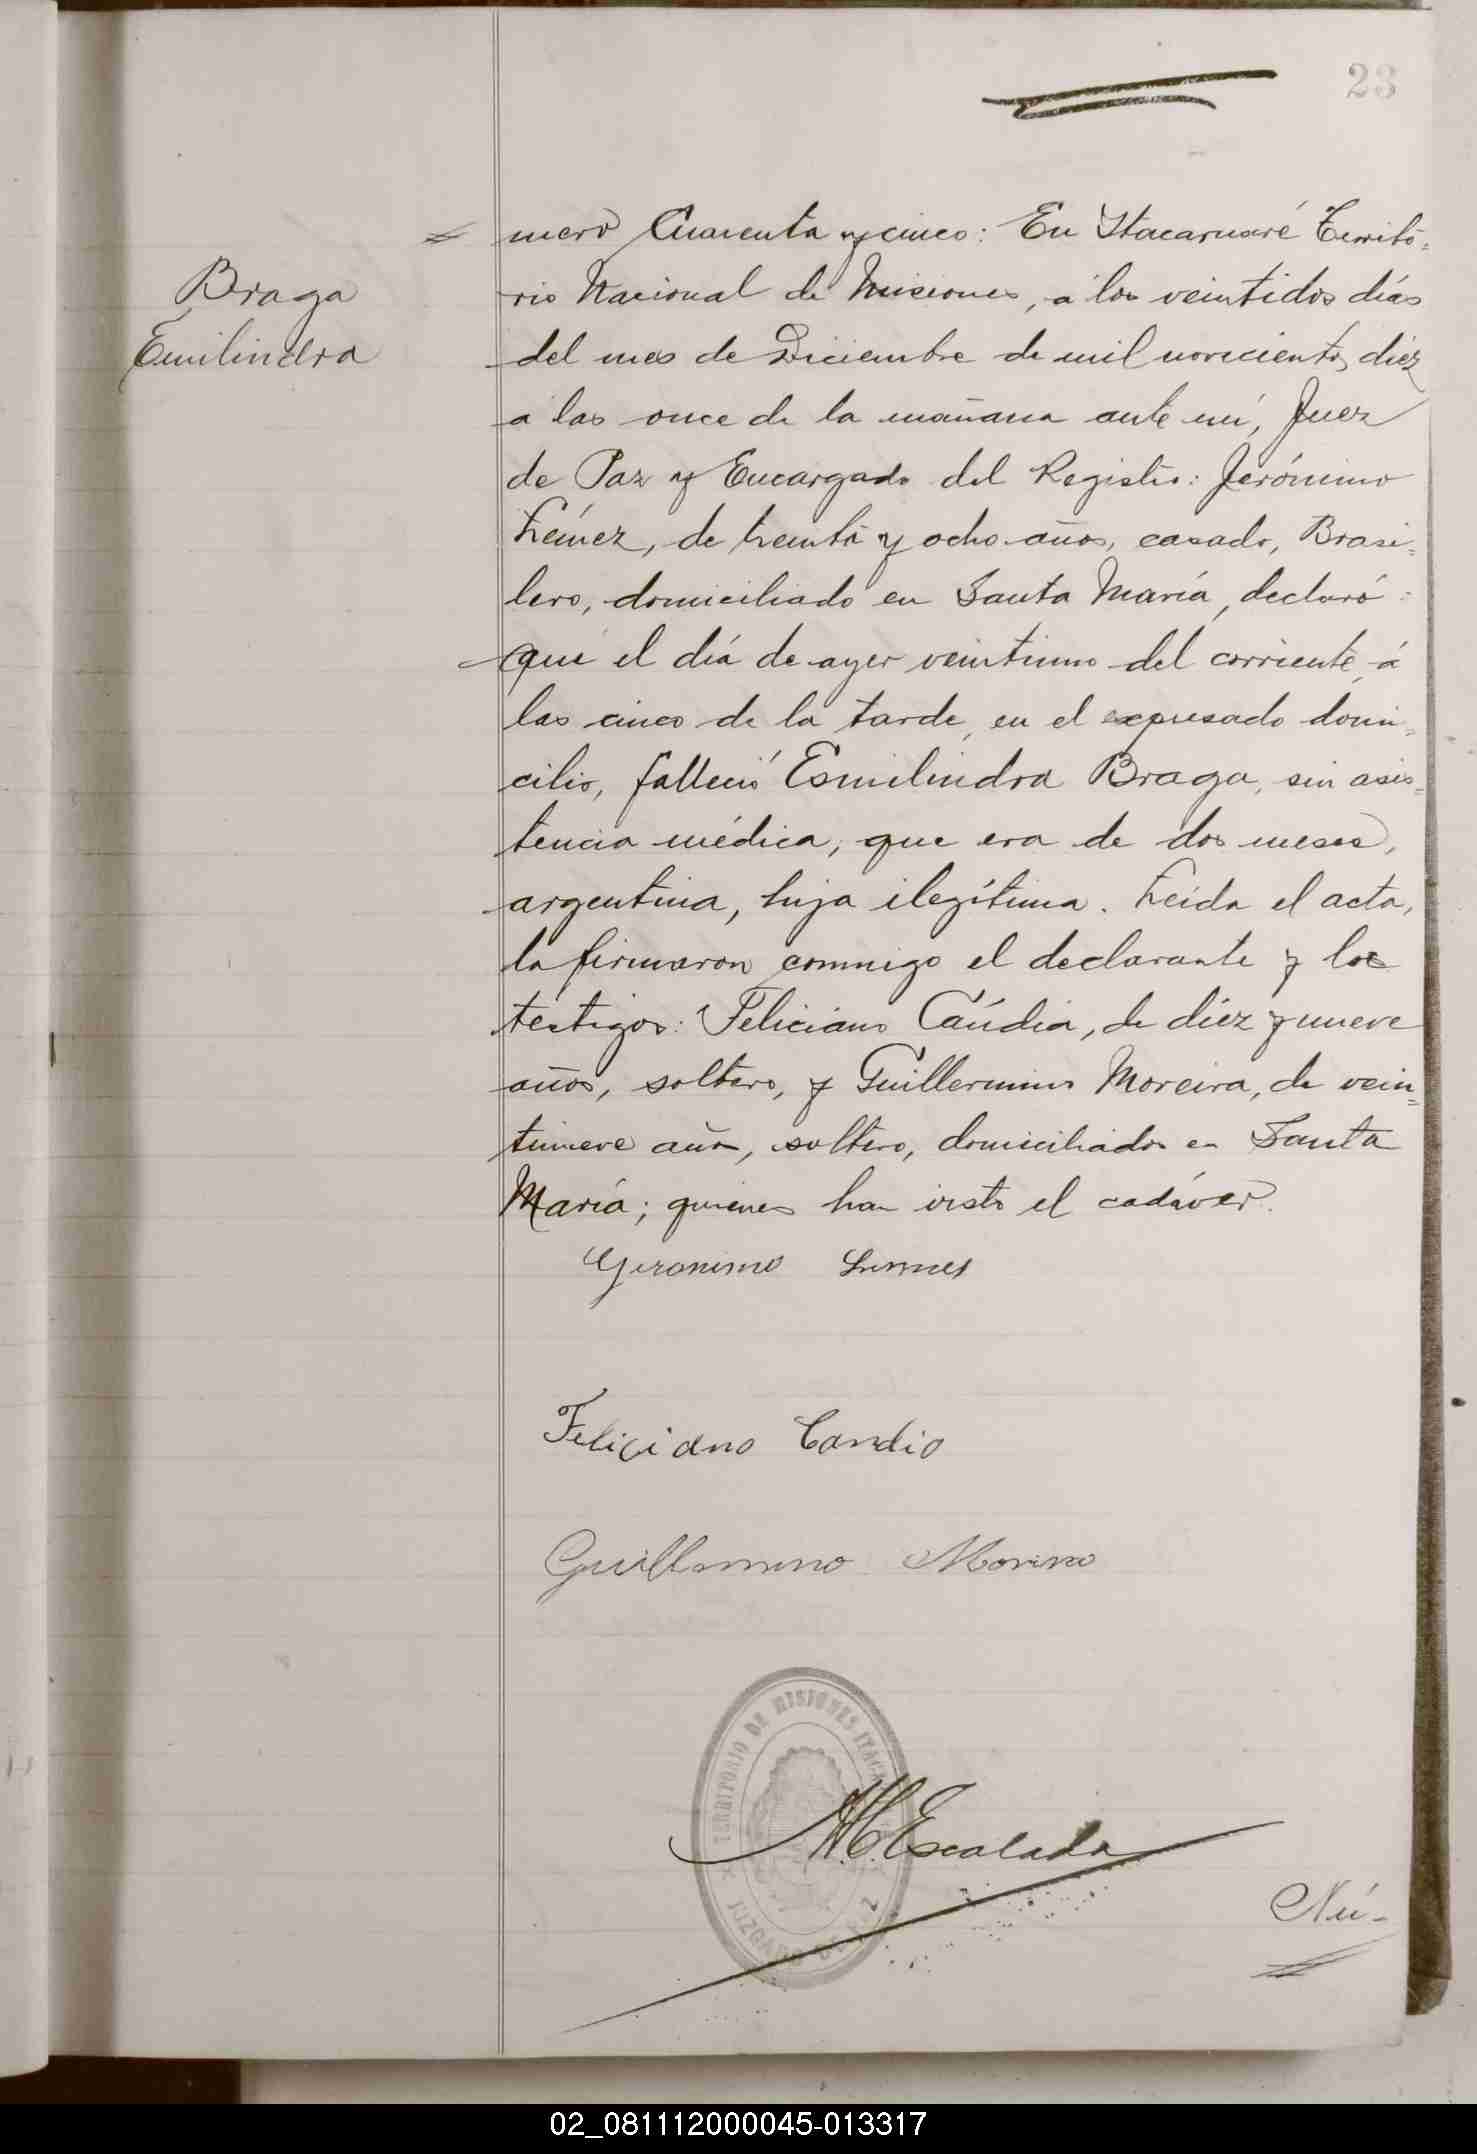 23
Braga
Emilindra
mero Cuarenta y cinco: En Itacaruaré Territo=
rio Nacional de Misiones, a los veintidos días
del mes de Diciembre de mil novecientos diez
a las once de la mañana ante mí, Juez
de Paz y Encargado del Registro: Jerónimo
de treinta y ocho años, casado, Brasi=
lero, domiciliado en Santa María, declaró:
que el día de ayer veintiuno del corriente, á
las cinco de la tarde, en el expresado domi=
cilio, falleció Esmilindra Braga, sin asis=
tencia médica, que era de dos meses,
argentina, hija ilegítima. Leida el acta,
la firmaron conmigo el declarante y los
testigos: Feliciano Cándia, de diéz y nueve
años, soltero, y Guillermino Moreira, de vein=
tinueve años, soltero, domiciliados en Santa
María; quienes han visto el cadáver.
Geronimo
Feliciano Candio
Guillermino
TERRITORIO DE MISIONES
JUZGADO DE PAZ
Escalada
Nú-
02_081112000045-013317